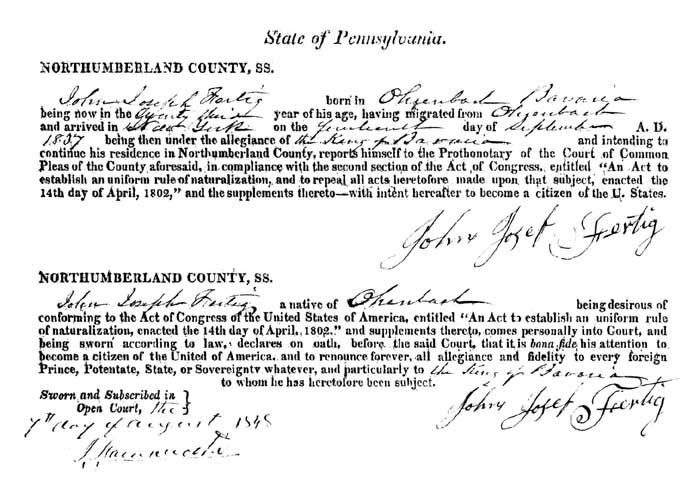 State of Pennsylvania.
NORTHUMBERLAND COUNTY, SS.
John Joseph Fertig born in Bavaria
being now in the year of his age, having migrated from
and arrived in New York on the day of September A. D.
1837 being then under the allegiance of the King of Bavaria and intending to
continue his residence in Northumberland County, reports himself to the Prothonotary of the Court of Common
Pleas of the County aforesaid, in compliance with the second section of the Act of Congress, entitled "An Act to
establish an uniform rule of naturalization, and to repeal all acts heretofore made upon that subject, enacted the
14th day of April, 1802," and the supplements thereto—with intent hereafter to become a citizen of the U. States.
John Josef Fertig
NORTHUMBERLAND COUNTY, SS.
John Joseph Fertig a native of being desirous of
conforming to the Act of Congress of the United States of America, entitled "An Act to establish an uniform rule
of naturalization, enacted the 14th day of April, 1802." and supplements thereto, comes personally into Court, and
being sworn according to law, declares on oath, before the said Court, that it is bona fide his attention to
become a citizen of the United of America, and to renounce forever, all allegiance and fidelity to every foreign
Prince, Potentate, State, or Sovereignty whatever, and particularly to the King of Bavaria
to whom he has heretofore been subject.
Sworn and Subscribed in }
Open Court, the }
7th day of August 1848
John Josef Fertig